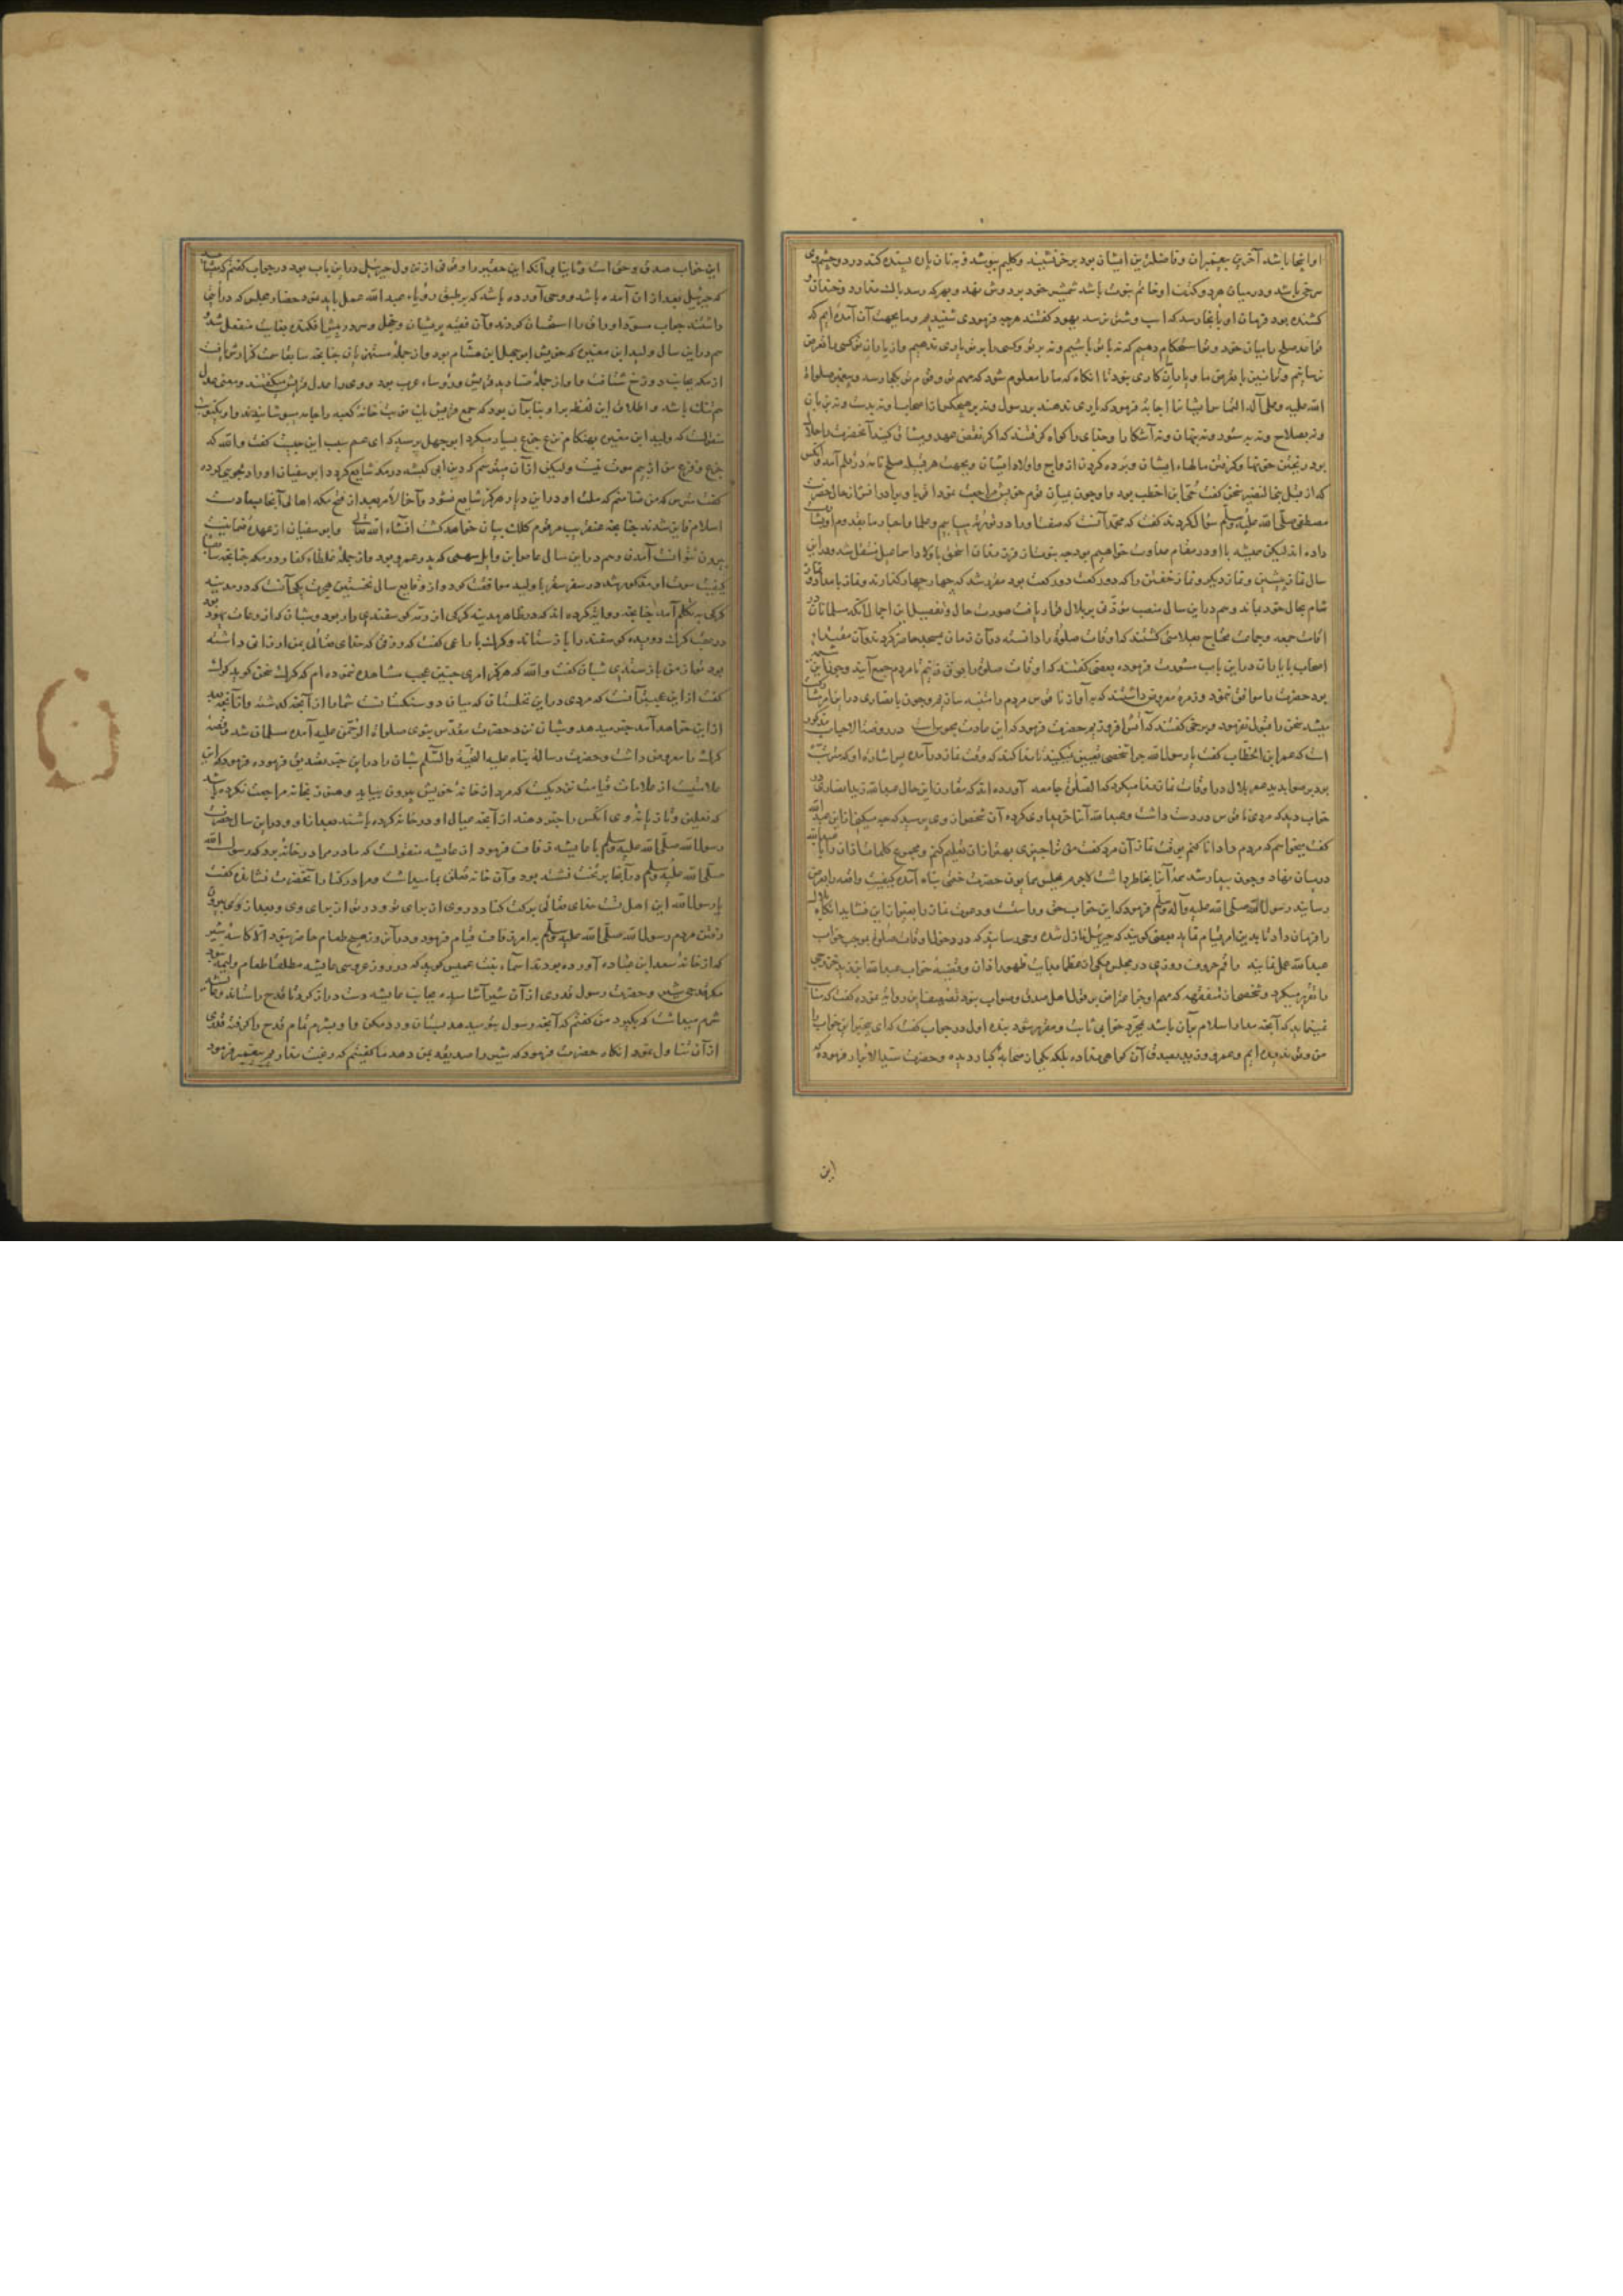 او اینجا باشد آخرین پیغمبران و فاضلترین ایشان بود بر خر نشیند و کلیم پوشد و به نان پاره بسنده کند در دو چشم وی
سرخی باشد و در میان هر دو کتف او خاتم نبوت باشد شمشیر خود بر دوش نهد و بهر که رسد باک ندارد و خندان و
کشنده بود فرمان او بانجا رسد که اسب و شتر رسد یهود گفتند هر چه فرمودی شنیدیم و ما بجهت آن آمده‌ایم که
قاعده صلح را میان خود و شما استحکام دهیم که نه با تو باشیم و نه بر تو و کسی را بر تو یاری ندهیم و از یاران تو کسی را تعرض
نرسانیم و تو نیز تعرض ما و یاران ما نکنی تا آنگاه که ما را معلوم شود که مهم تو و قوم تو بکجا رسد و پیغمبر صلوات
الله علیه و علی آله التماس ایشان را اجابت فرمود که یاری ندهند بر رسول و نه بر هیچکس از اصحاب او نه بدست و نه بزبان
و نه بسلاح و نه بستور و نه پنهان و نه آشکارا و خدای را گواه گرفتند که اگر نقض عهد و پیمان کنند آنحضرت را حلال
بود ریختن خونها و گرفتن مالهای ایشان و برده کردن ازواج و اولاد ایشان و بجهت هر قبیله صلح نامه در قلم آمد و آنکس
که از قبل بنی النضیر سخن گفت حیی ابن اخطب بود و چون بمیان قوم خویش مراجعت نمود اقربا و برادرانش از حال حضرت
مصطفی صلّی الله علیه و سلّم سؤال کردند گفت که محمد آنست که صفت او را در توریة بیابیم و علما و احبار ما بقدوم او بشارت
داده‌اند لیکن همیشه با او در مقام عداوت خواهیم بود چه نبوت از فرزندان اسحق باولاد اسماعیل منتقل شد و در این
سال نماز پیشین و نماز دیگر و نماز خفتن را که دو رکعت دو رکعت بود مقرر شد که چهار چهار گذارند و نماز بامداد و نماز
شام بحال خود بماند و هم در این سال منصب مؤذنی بر بلال قرار یافت صورت حال و تفصیل این اجمال آنکه مسلمانان در
اقامت جمعه و جماعت محتاج بعلامتی گشتند که اوقات صلوة را دانسته در آن زمان بمسجد حاضر گردند و آن
اصحاب با یاران در این باب مشورت فرموده بعضی گفتند که اوقات صلوة را بوق زنیم تا مردم جمع آیند و چون این
بود حضرت را موافق ننمود و زمره معروض داشتند که به آواز ناقوس مردم را متنبه سازیم و چون نصاری در این امر
میشد سخن را قبول نفرمود و برخی گفتند که آتش افروزیم حضرت فرمود که این عادت مجوس است در روضة الاحباب مذکور
است که عمر ابن الخطاب گفت یا رسول الله چرا شخصی تعیین نمیکنید تا ندا کند که وقت نماز در آمده پس اشاره او که مقرون
بود بصواب دید عمر بلال در اوقات نماز ندا میکرد که الصلوة جامعه آورده‌اند که مقارن این حال عبدالله زید انصاری در
خواب دید که مردی ناقوس در دست داشت و عبدالله آنرا خریداری کرده آن شخص از وی پرسید که چه میکنی این را عبد الله
گفت میخواهم که مردم را دانا کنم بوقت نماز آن مرد گفت من ترا چیزی بهتر از آن تعلیم کنم و مجموع کلمات اذان را با عبدالله
در میان نهاد و چون بیدار شد همه آنرا بخاطر داشت مجلس همایون حضرت ختمی پناه آمده کیفیت واقعه را بعرض
رسانید رسول الله صلّی الله علیه و آله و سلّم فرمود که این خواب حق و راست است و صوت نماز را بعنوان این فشاید آنگاه بلال
را فرمان داد تا بدین امر قیام نماید بعضی گویند که جبرئیل نازل شده وحی رسانید که در دخول اوقات صلوة بموجب خواب
عبد الله عمل نمایند راقم حروف روزی در مجلس یکی از عظما بدایت ظهور اذان و قضیه خواب عبد الله ابن زید خزرجی
را تقریر میکرد و شخصی از متفقهه که مهم او جز اعتراض بر قول اهل صدق و صواب نبود تضعیف این روایه نموده گفت که مناسب
نمینماید که آنچه مدار اسلام بر آن باشد بمجرد خوابی ثابت و مقرر شود بنده اول در جواب گفت که ای عزیز این خواب را
من و تو ندیده‌ایم و عمرو و زید بصدق آن گواهی نداده بلکه یکی از صحابه کبار دیده و حضرت سید الابرار فرموده که
این
این خواب صدق و حق است و ثانیا بی آنکه این حقیر را وقوفی از نزول جبرئیل در این باب بود در جواب گفتم که میشاید
که جبرئیل بعد از آن آمده باشد و وحی آورده باشد که بر طبق رؤیاء عبد الله عمل باید نمود حضار مجلس که در آنجا
داشتند جواب مسود اوراق را استحسان کردند و آن فقیه پریشان و خجل و سر در پیش افکنده بغایت منفعل شد و
هم در این سال ولید ابن مغیره که خویش ابوجهل ابن هشام بود و از جمله مستهزیان چنانچه سابقا سمت گزارش یافت
از مکه بجانب دوزخ شتافت و او از جمله صنادید قریش و رؤساء عرب بود و وی را عدل قریش میگفتند و معنی عدل
هم تنگ باشد و اطلاق این لفظ بر او بنابر آن بود که جمع قریش بایت خانه کعبه را جامه پوشانیدند و او یکنوبت
منقولست که ولید ابن مغیره بهنگام نزع جزع بسیار میکرد ابوجهل پرسید که ای عم سبب این چیست گفت والله که
جزع و فزع من از بیم موت نیست ولیکن از آن میترسم که دین ابن ابی کبشه در مکه شایع گردد ابوسفیان او را دلجویی کرده
گفت مترس که من ضامنم که ملت او در این دیار هرگز شایع نشود و آخر الامر بعد از فتح مکه اهالی آنجا بسعادت
اسلام فایز شدند چنانچه عنقریب مرقوم کلک بیان خواهد گشت انشاء الله تعالی و ابو سفیان از عهده ضمانت
بیرون نتوانست آمدن و هم در این سال عاص ابن وایل سهمی که پدر عمرو بود و از جمله غلطاء کفار در مکه چنانچه سابقا
کیفیت موت او مذکور شد در سفر سقر با ولید موافقت کرد و از وقایع سال نخستین هجرت یکی آنست که در مدینه
گرگی به تکلم آمد چنانچه روایت کرده‌اند که در ظاهر مدینه گرگی از رمه گوسفندی ربود و شبان که از رعات یهود بود
در عقب گرگ دویده گوسفند را باز ستاند و گرگ با راعی گفت که رزقی که خدای تعالی بمن ارزانی داشته
بود تو از من باز ستدی شبان گفت والله که هرگز امری چنین عجب مشاهده ننموده‌ام که گرگ سخن گوید گرگ
گفت از این عجیبتر آنست که مردی در این نخلستان که میان دو سنگستان است شما را از آنچه گذشته و از آنچه بعد
از این خواهد آمد خبر میدهد و شبان نزد حضرت مقدس نبوی صلوات الرحمن علیه آمده مسلمان شد و قصه
گرگ را معروض داشت و حضرت رسالت پناه علیه التحیة والسلام شبان را در این خبر تصدیق فرموده فرمود که این
علامتیست از علامات قیامت نزدیکست که مرد از خانه خویش بیرون بیاید و هنوز بخانه مراجعت نکرده باشد
که نعلین و تازیانه وی آنکس را خبر دهند از آنچه عیال او در خانه کرده باشند بعد از او و در این سال حضرت
رسول الله صلّی الله علیه و سلّم با عایشه زفاف فرمود از عایشه منقولست که مادر مرا در خانه بود که رسول الله
صلّی الله علیه و سلّم در آنجا بر تخت نشسته بود و آن خانه تعلق بما میداشت و مرا در کنار آنحضرت نشانده گفت
یا رسول الله این اهل تست خدای تعالی برکت کناد در وی از برای تو و در تو از برای وی و بعد از بیرون
رفتن مردم رسول الله صلّی الله علیه و سلّم به امر زفاف قیام فرمود و در آن روز هیچ طعام حاضر نبود الا کاسه شیر
که از خانه سعد ابن عباده آورده بودند اسماء بنت عمیس گوید که در روز عروسی عایشه مطلقا طعام ولیمه نبود
مگر قدحی شیر و حضرت رسول قدری از آن شیر آشامیده بجانب عایشه دست دراز کرد تا قدح را ستاند و عایشه
شرم میداشت که بگیرد من گفتم که آنچه رسول بتو میدهد بستان و رد مکن و او بشرم تمام قدح را گرفته قدری
از آن تناول نمود آنگاه حضرت فرمود که شیر را صدیقه بمن دهد ما گفتیم که رغبت نداریم پیغمبر فرمود